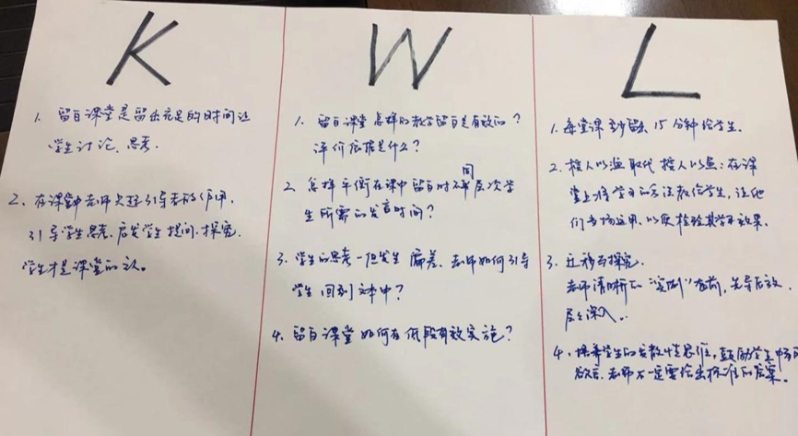 K
1. 留白课堂是留出充足的时间让
学生讨论、思考.
2、在课堂中老师只起引导者的作用,
引导学生思考、启发学生提问、探究,
学生才是课堂的。
W
1. 留白课堂怎样的教学留白是有效的?
评价依据是什么?
2. 怎样平衡在课中留白时不同层次学
生所需的发言时间?
3. 学生的思考一但发生偏差,老师如何引导
学生回到文本中?
4. 留白课堂如何在低段有效实施?
L
1. 每堂课至少留出15分钟给学生.
2. 授人以渔取代授人以鱼:在课
堂上将学习的方法教给学生,让他
们当场运用,以便检验其学习效果.
3. 迁移与探究.
老师清晰的“实例”在前,先导后放,
层层深入.
4、培养学生的发散性思维,鼓励学生
老师不一定要给出标准的答案。